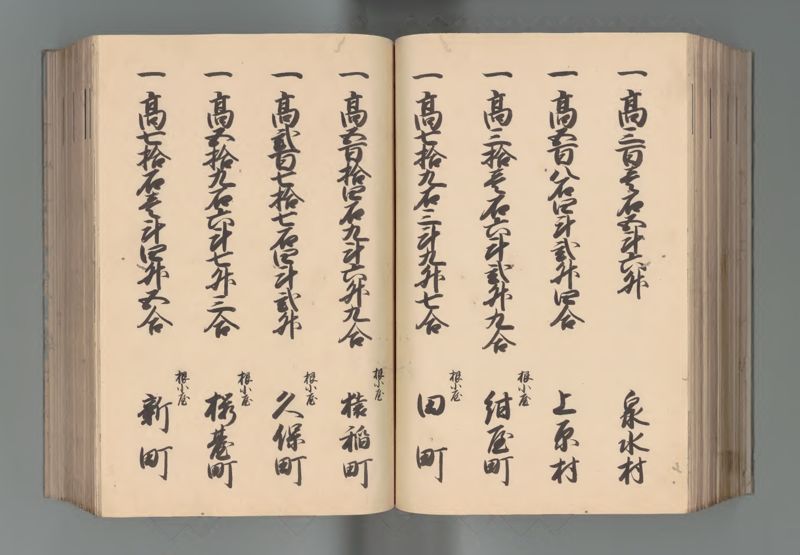 一 髙三百壱石五斗六升 泉水村
一 髙五百八石四斗弐升四合 上原村
一 髙三拾壱石六斗弐升九合 根小屋 紺屋町
一 髙七拾九石三斗九升七合 根小屋 田町
一 髙五百拾四石九斗六升九合 根小屋 稲町
一 髙弐百七拾七石四斗弐升 根小屋 久保町
一 髙五拾九石六斗七升三合 根小屋 町
一 髙七拾石壱斗四升五合 根小屋 新町